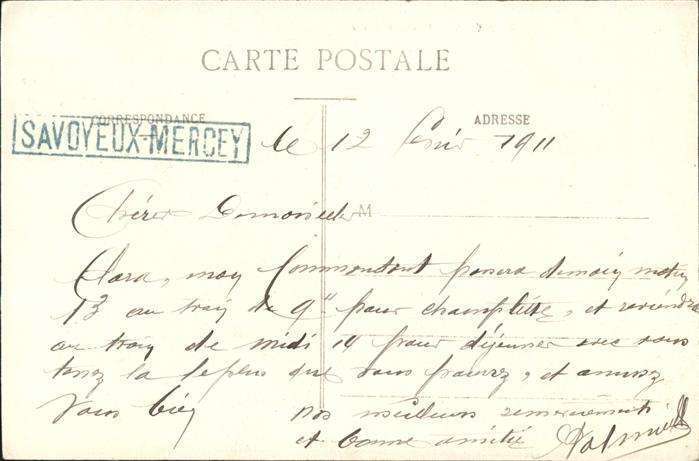 CARTE POSTALE
CORRESPONDANCE
ADRESSE
SAVOYEUX-MERCEY
le 12 1911
Chères Demoiselles
M
Clara, mon Commandant passera demain matin
13 au train de 9h pour champlitte, et reviendra
au train de midi 14 pour déjeuner avec vous
tenez la le plus que vous pourrez, et amusez
Vous bien
nos meilleurs remerciements
et bonne amitié